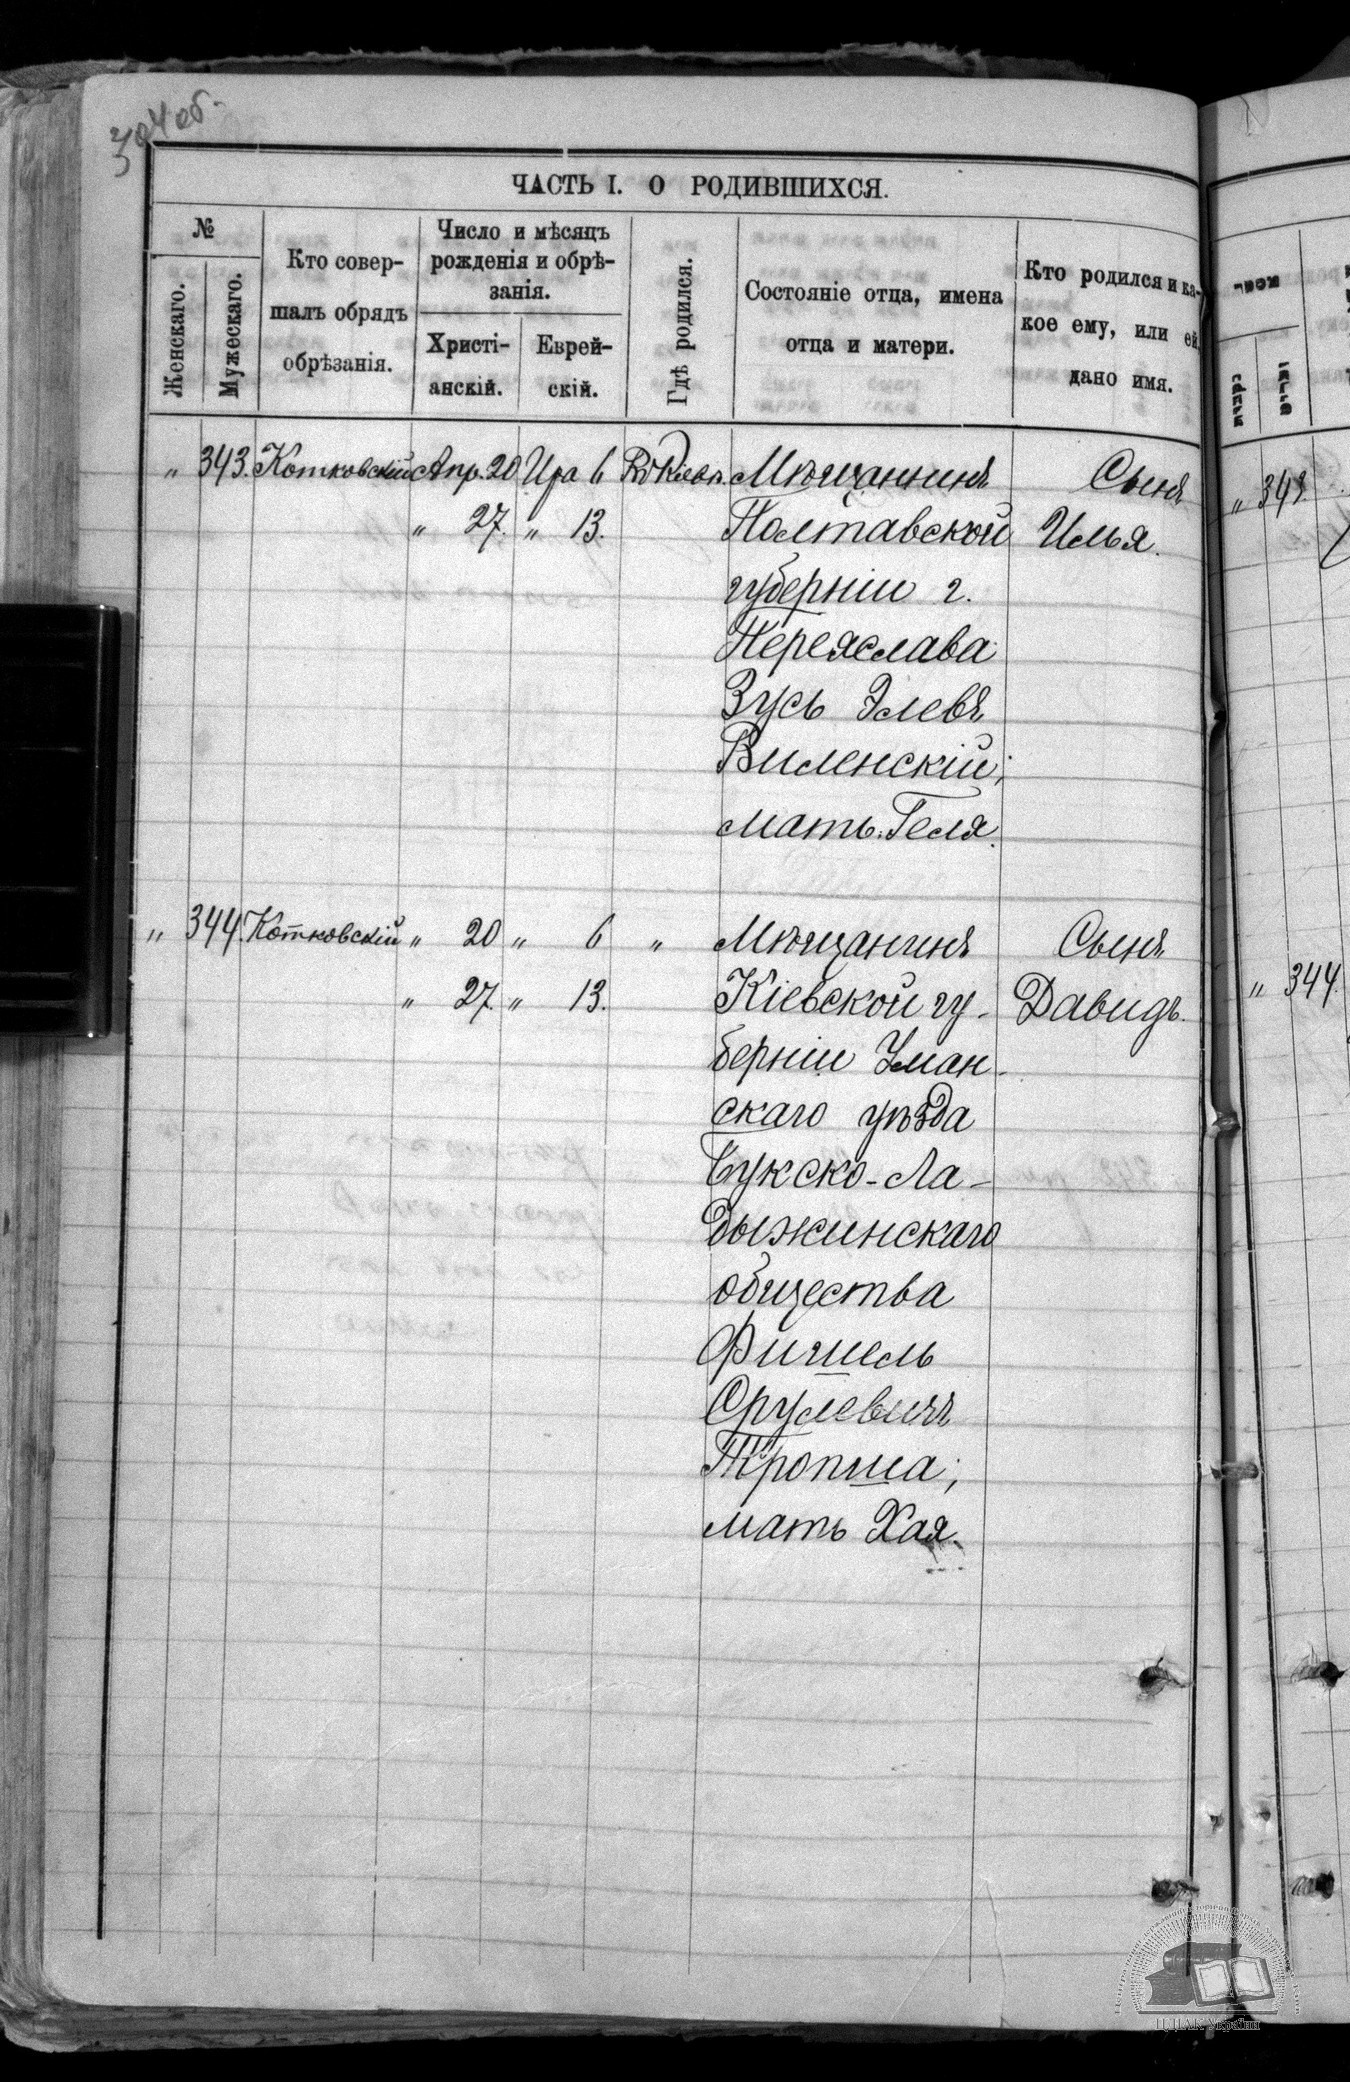 304 об.
ЧАСТЬ I. О РОДИВШИХСЯ.
№
Женскаго.
Мужескаго.
Кто совер-
шалъ обрядъ
обрѣзанія.
Число и мѣсяцъ
рожденія и обрѣ-
занія.
Христі-
анскій.
Еврей-
скій.
Гдѣ родился.
Состояніе отца, имена
отца и матери.
Кто родился и ка-
кое ему, или ей,
дано имя.
" 343. Котковскій Апр. 20 Ира 6 Мѣщанинъ Сынъ
" 27. " 13. Полтавской Илья.
губерніи г.
Переяслава
Зусь Элевъ
Виленскій;
мать: Геля.
" 344. Котковскій " 20 " 6 " Мѣщанинъ Сынъ
" 27. " 13. Кіевской гу- Давидъ.
берніи Уман-
скаго уѣзда
Букско-Ла-
дыжинскаго
общества
Фишель
Срулевичъ
Тропша;
мать Хая.
" 343.
" 344.
ЦДІАК України